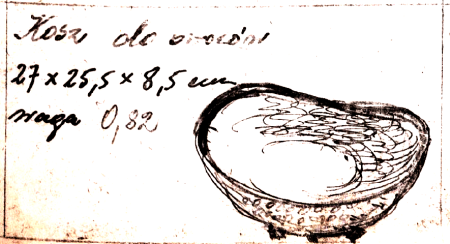 Kosz do owoców
27 x 25,5 x 8,5 cm
waga 0,82